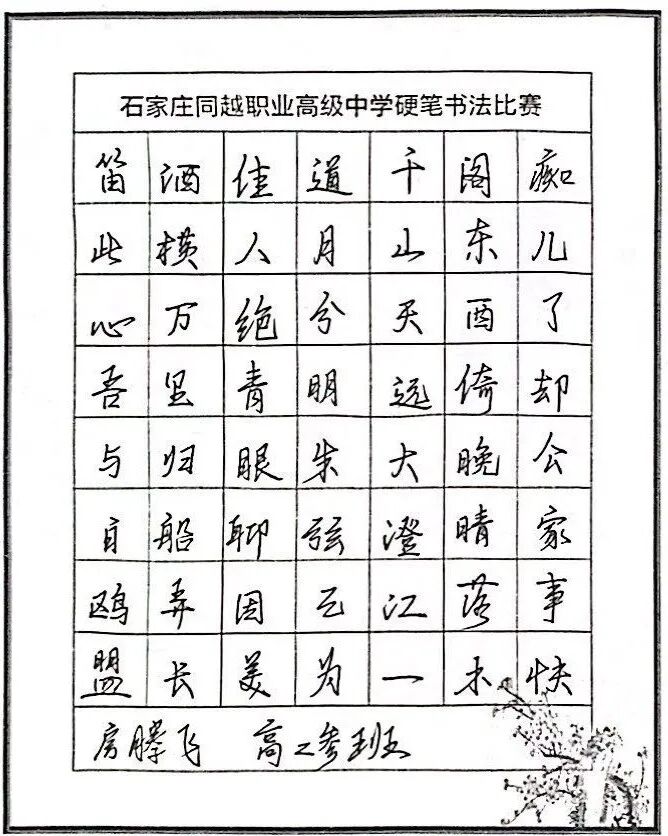 石家庄同越职业高级中学硬笔书法比赛
痴儿了却公家事快
阁东西倚晚晴落木
千山天远大澄江一
道月分明朱弦已为
佳人绝青眼聊因美
酒横万里归船弄长
笛此心吾与白鸥盟
房腾飞 高二叁班